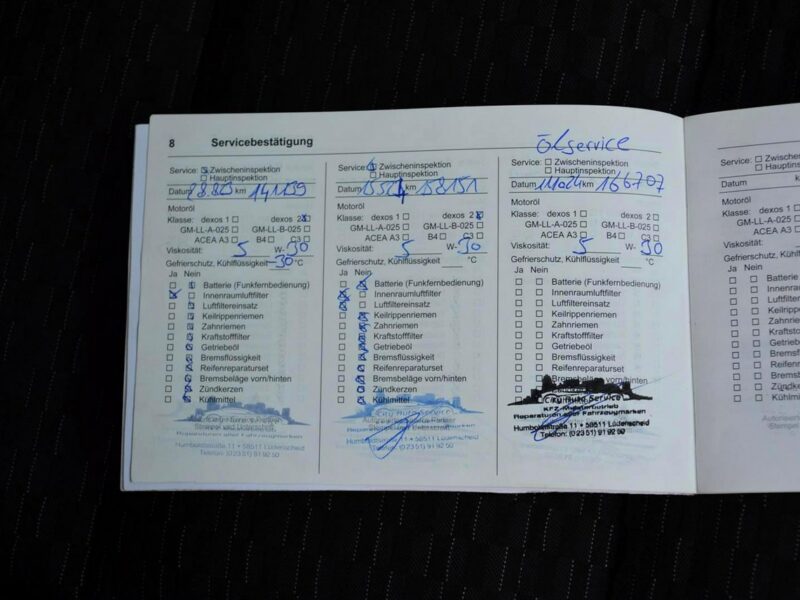 8 Servicebestätigung
Service: Zwischeninspektion
Hauptinspektion
Datum 28.8.23 km 141139
Motoröl
Klasse: dexos 1 dexos 2
GM-LL-A-025 GM-LL-B-025
ACEA A3 B4 C3
Viskosität: 5 W- 30
Gefrierschutz, Kühlflüssigkeit -30 °C
Ja Nein
Batterie (Funkfernbedienung)
Innenraumluftfilter
Luftfiltereinsatz
Keilrippenriemen
Zahnriemen
Kraftstofffilter
Getriebeöl
Bremsflüssigkeit
Reifenreparaturset
Bremsbeläge vorn/hinten
Zündkerzen
Kühlmittel
Humboldstraße 11 • 58511 Lüdenscheid
Telefon: (0 23 51) 91 92 50
Service: Zwischeninspektion
Hauptinspektion
Datum km 158151
Motoröl
Klasse: dexos 1 dexos 2
GM-LL-A-025 GM-LL-B-025
ACEA A3 B4 C3
Viskosität: 5 W- 30
Gefrierschutz, Kühlflüssigkeit °C
Ja Nein
Batterie (Funkfernbedienung)
Innenraumluftfilter
Luftfiltereinsatz
Keilrippenriemen
Zahnriemen
Kraftstofffilter
Getriebeöl
Bremsflüssigkeit
Reifenreparaturset
Bremsbeläge vorn/hinten
Zündkerzen
Kühlmittel
City Auto Service
Reparaturen aller Fahrzeugmarken
Humboldstraße 11 • 58511 Lüdenscheid
Telefon: (0 23 51) 91 92 50
Ölservice
Service: Zwischeninspektion
Hauptinspektion
Datum 11.10.24 km 166707
Motoröl
Klasse: dexos 1 dexos 2
GM-LL-A-025 GM-LL-B-025
ACEA A3 B4 C3
Viskosität: 5 W- 30
Gefrierschutz, Kühlflüssigkeit °C
Ja Nein
Batterie (Funkfernbedienung)
Innenraumluftfilter
Luftfiltereinsatz
Keilrippenriemen
Zahnriemen
Kraftstofffilter
Getriebeöl
Bremsflüssigkeit
Reifenreparaturset
Bremsbeläge vorn/hinten
City Auto Service
KFZ-Meisterbetrieb
Reparaturen aller Fahrzeugmarken
Humboldstraße 11 • 58511 Lüdenscheid
Telefon: (0 23 51) 91 92 50
Service: Zwischeninspektion
Hauptinspektion
Datum
Motoröl
Klasse: dexos 1
GM-LL-A-025
ACEA A3
Viskosität:
Gefrierschutz, Kühlflüssigkeit
Ja Nein
Batterie
Innenraum
Luftfilter
Keilrippen
Zahnriemen
Kraftstoff
Getriebeöl
Bremsflüs
Reifenrep
Bremsbel
Zündkerz
Kühlmittel